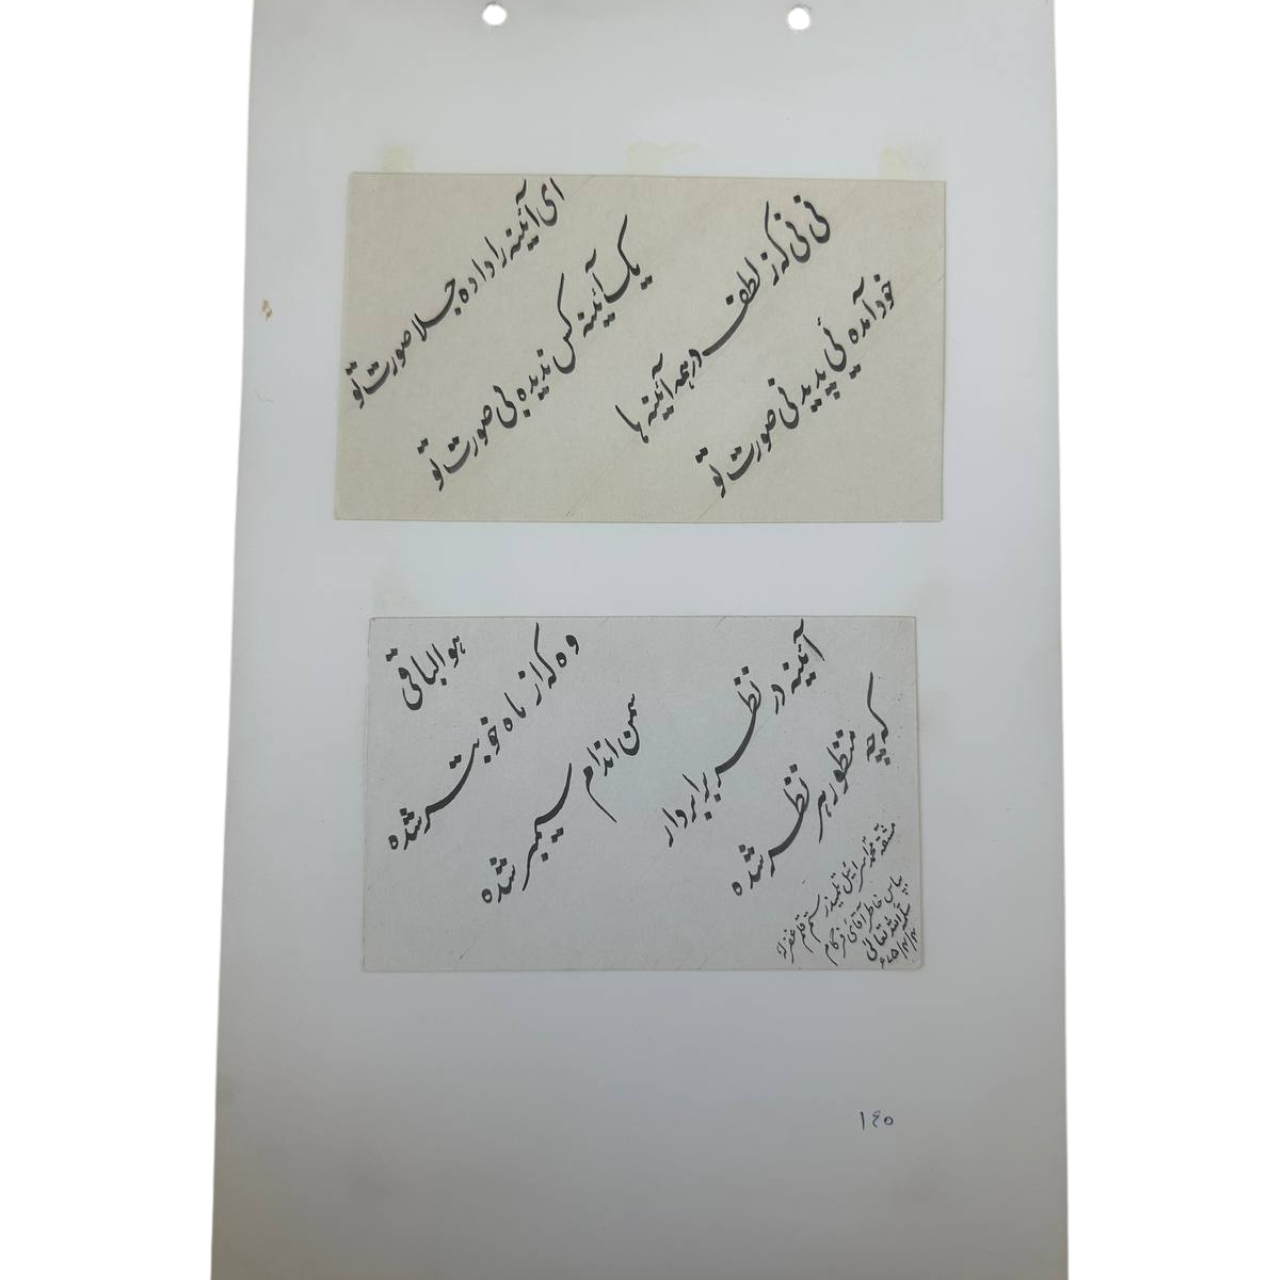 ای آئینه را داده جلا صورت تو
یک آئینه کس ندیده بی صورت تو
نی نی که ز لطف در همه آئینه ها
خود آمده ئی پدید نی صورت تو
هو الباقی
وه که از ماه خوبتر شده
سمن اندام سیمبر شده
آئینه در نظر برابر دار
که چه منظور هر نظر شده
مشقه محمد اسرائیل تلمیذ رستم قلم غفر له
بپاس خاطر آقائی فرکام
سلمه الله تعالی
۱۴۰